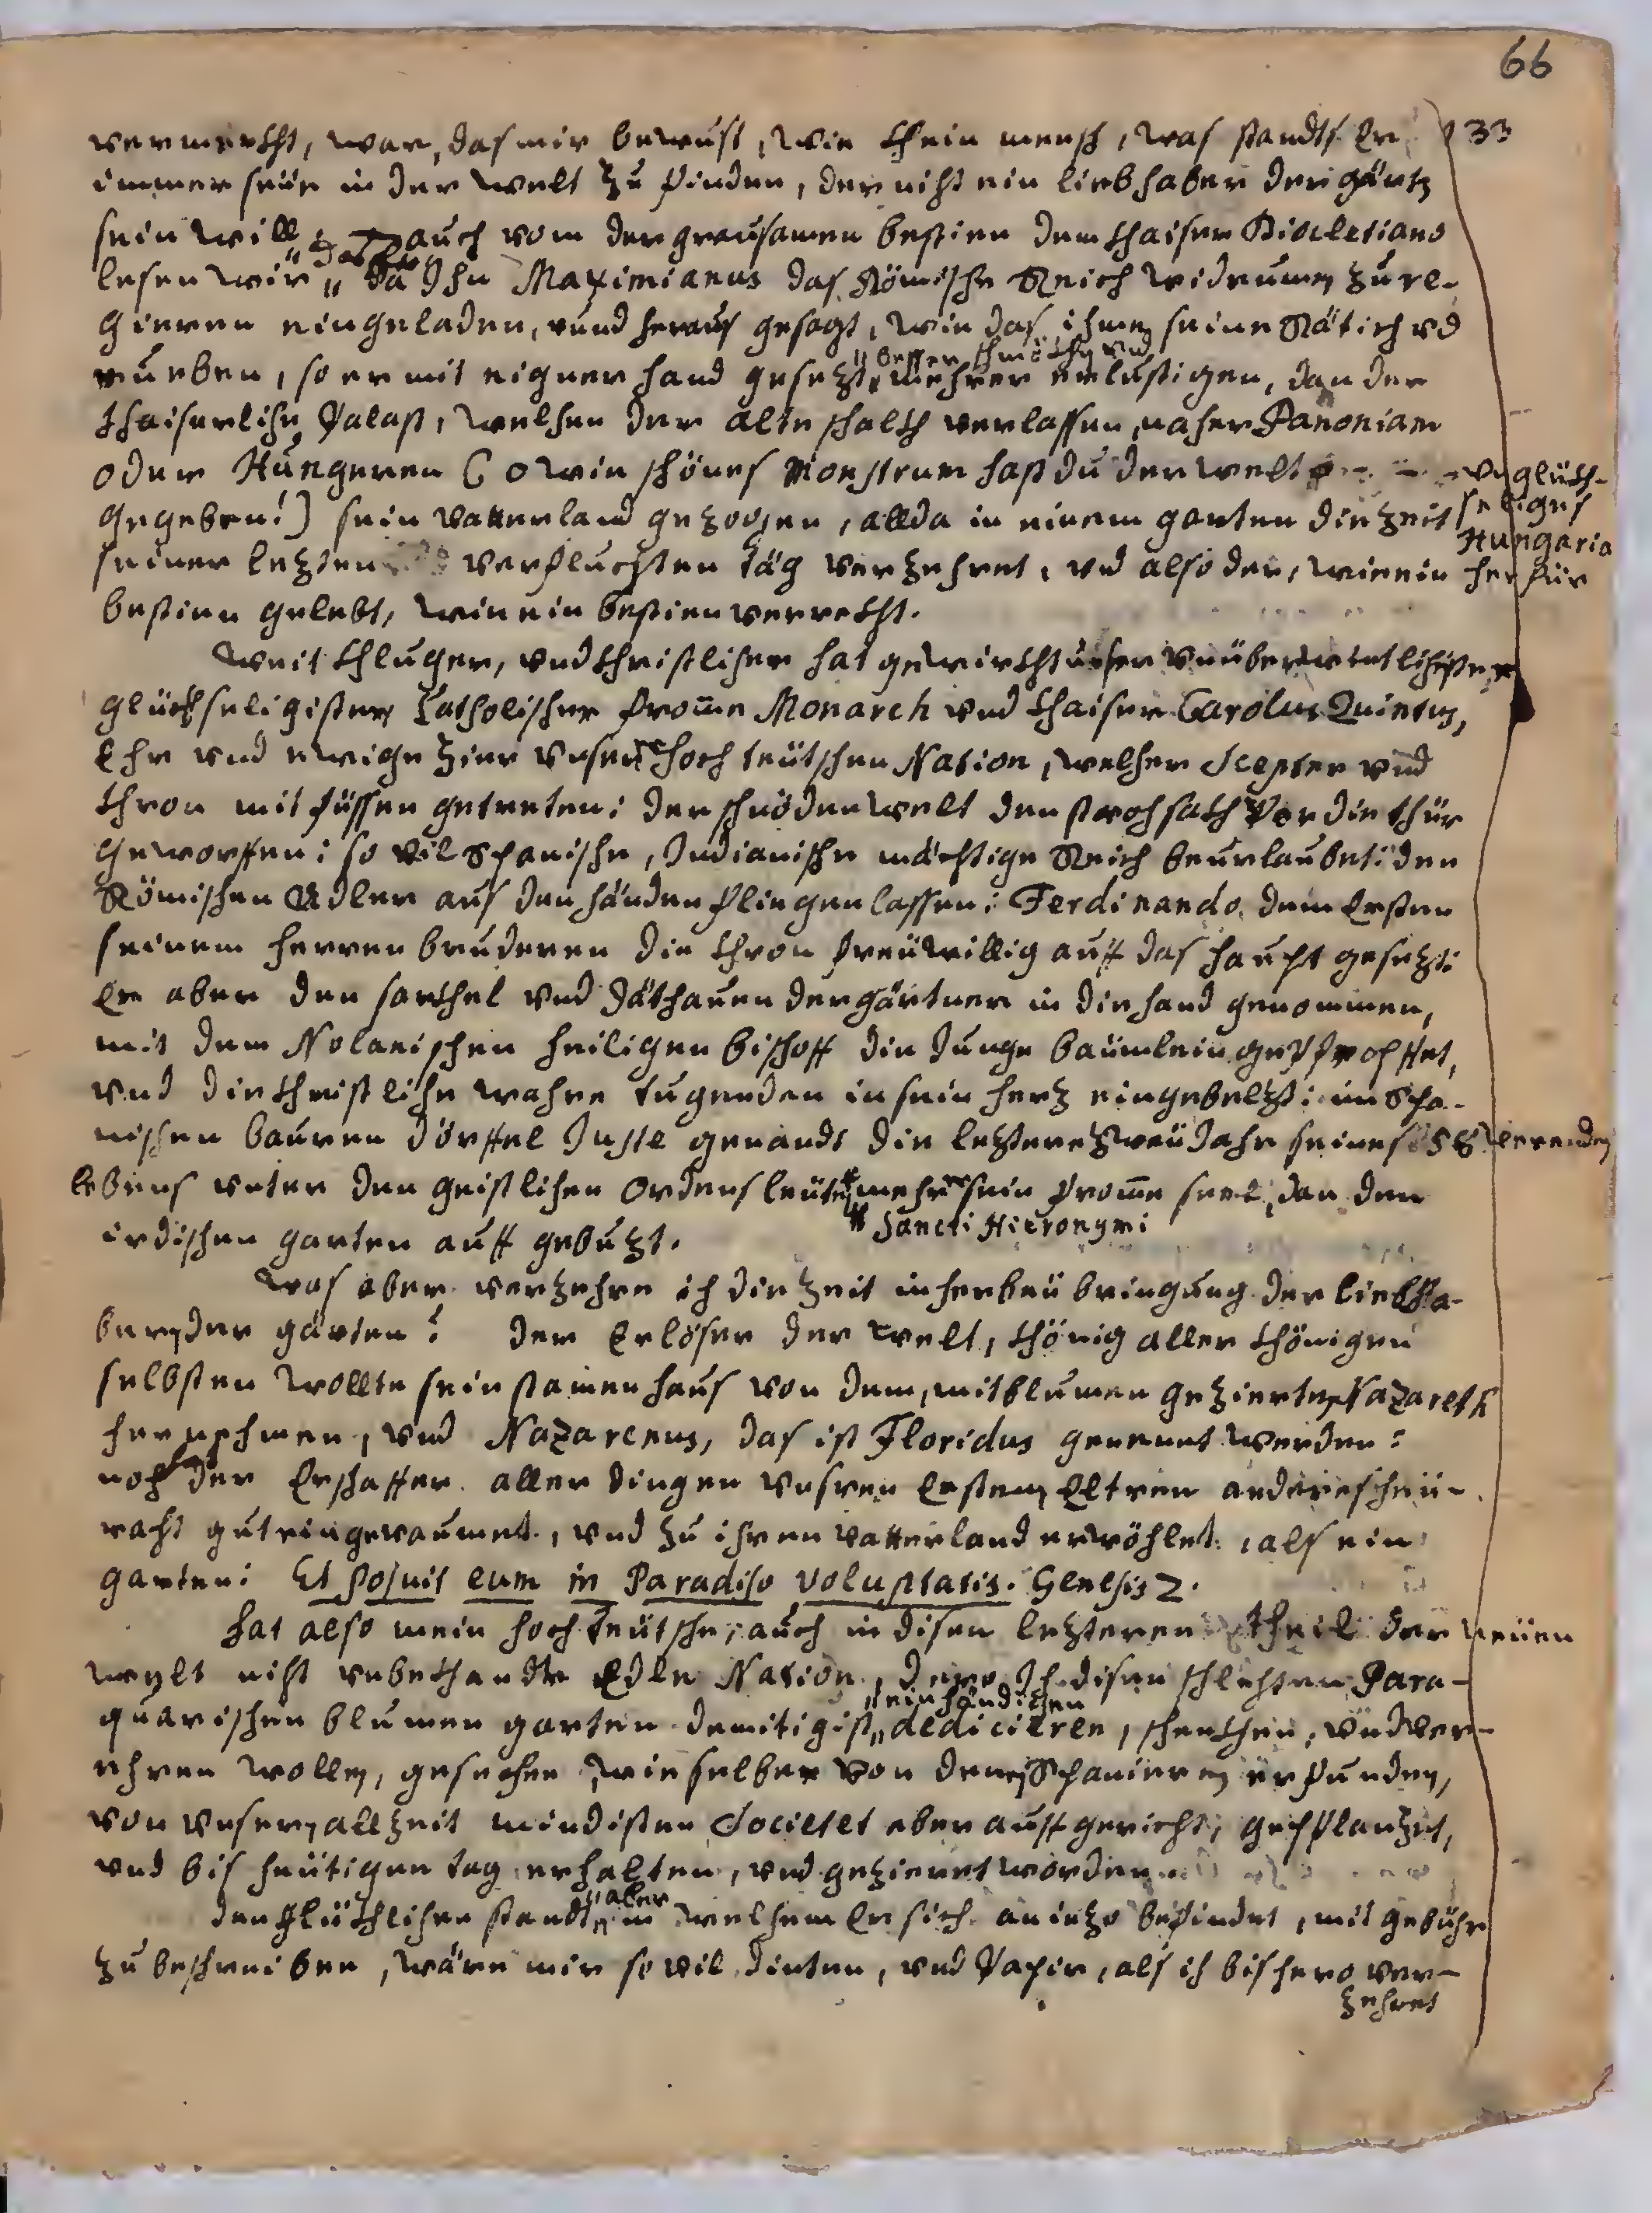 66
33
vermerckt, war, das mir bewust, wie kein mensch, was standts Er
immer seije in der welt zu finden, der nicht ein liebhaber der gärten
sein will, auch vom der grausamen bestien dem kaiser Diocletiano
lesen wir " da Ihn Maximianus das Römische Reich widrumen zu re-
gieren eingeladen, vnnd heraus gesagt, wie das ihmen seine Rätich vnd
rueben, so er mit eigner hand gesetzt, " besser schmöcken vnd
mehrer erlustigen, dan der
kaiserliche Palast, welchen der alte schalck verlassen, nacher Panoniam
oder Hungeren (o wie schönes Monstrum hast du der welt
vnglück-
seliges
Hungaria
herfür
gegeben!) sein vatterland gezogen, allda in einem garten die zeit
seiner letzten verfluchten täg verzehret, vnd also der, wie ein
bestien gelebt, wie ein bestien verreckt.
Weit kluger, vnd christlicher hat gewirckt unser vnüberwintlichister
glückseligister Catholischer fromme Monarch vnd kaiser Carolus Quintus,
Ehr vnd ewige zier vnser hoch teütschen Nation, welcher Scepter vnd
thron mit füssen getreten: der schnöden welt den strohsack vor die thür
geworffen: so vil Spanische, Indianische mächtige Reich beurlaubet: den
Römischen Adler aus den händen fliegen lassen: Ferdinando dem Ersten
seinem herren bruderen die Chron freüwillig auff das haupt gesetzt:
Er aber den sarckel vnd Jäthauen der gärtner in die hand genommen,
mit dem Nolanischen heiligen bischoff die Junge bäumlein gepfropffet,
vnd die christliche wahre tugenden in sein hertz eingebeltzt: im Spa-
nischen bauren dörffel Juste genandt die letztere zweü Jahr seines
lebens vnter den geistlichen Ordens leüten mehr sein fromme seel, dan den
" Sancti Hieronymi
irdischen garten auff gebutzt.
Was aber verzehre ich die zeit in herbeü bringung der liebha-
ber der gärten? der Erlöser der welt, könig aller königen
selbsten wollte sein stamen haus von dem, mit blumen gezierten Nazareth
hernehmen, vnd Nazarenus, das ist Floridus genennt werden:
noch der Erschaffer aller dingen vnsren Ersten Eltren
gut eingeraumet, vnd zu ihren vatterland erwöhlet, als ein
garten: Et posuit eum in Paradiso voluptatis. Genesis 2.
Hat also mein hoch teütsche, auch in disen letzteren theil der neüen
welt nicht vnbekandte Edle Nation, deme Ich disen schlechten Para-
quarischen blumen garten demitigist " einhändigen
dediciren, schencken, vnd ver-
ehren wollen, gesechen, wie selber von denen Spanieren erfunden,
von vnseren allzeit mindisten Societet aber auffgericht, gepflantzet,
vnd bis heütigen tag erhalten, vnd gezieret worden
den glücklichen standt " aber
in welchem Er sich an ietzo befindet, mit gebühr
zu beschreiben, wäre mir so vil dinten, vnd Papir, als ich bis hero ver-
zehret